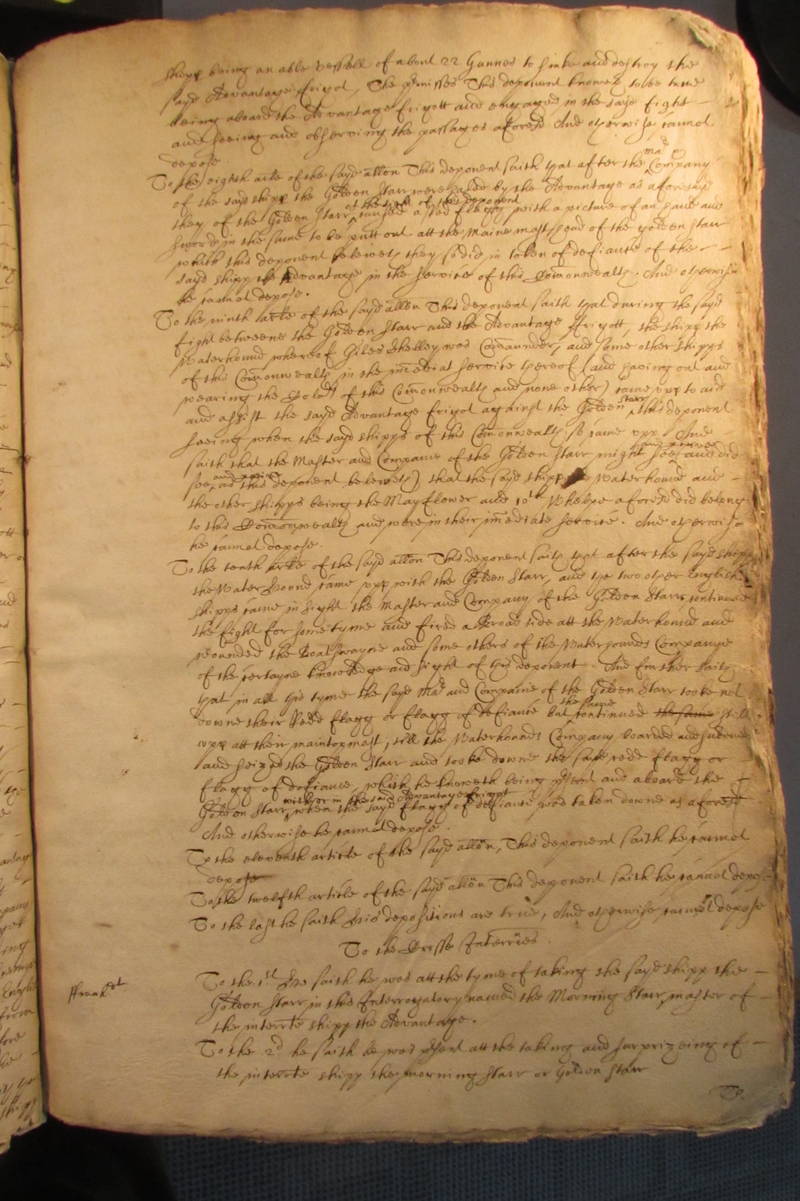 shipp being an able vessell of about 22 Gunnes to sinke and destroy the
sayd Advantage frigot, The p<sup>r</sup>misses This deponent knoweth to be true
being aboard the Advantage frigott and engaged in the sayd fight
and seeing and observing the passages aforesd And otherwise cannot
depose
To the eighth arle of the sayd allon This deponent saith that after the Ma<sup>r</sup> & Company
of the sayd shipp the Golden Starr were haled by the Advantage as aforesayd
they of the Golden Starr at the sight of this deponent caused a redd flagg with a picture of an hand and
sword in the same to be putt out att the maine mast head of the Golden Starr
which this deponent beleiveth they so did in token of defiance of the
sayd shipp the Advantage in the service of this Comonwealth. And otherwise
he cannot depose.
To the nineth arle of the sayd allon This deponent saith that during the sayd
fight betweene the Golden Starr and the Advantage ffrigott, the shipp the
Waterhound whereof Giles Shelley was Comaunder, and some other shipps
of this Comonwealth in the imediat service thereof (and having out and
wearing the Colors of this Comonwealth and none other) came upp to aid
and assist the sayd Advantage frigot against the Golden Starr, this deponent
seeing when the sayd shipps of this Comonwealth so came upp And
saith that the Master and Companie of the Golden Starr might see and did
see as this deponent beleiveth) that the sayd shipp Waterhound and
the other shipps being the Mayflower and 10<sup>th</sup> Whelpe aforesd did belong
to this Comonwealth and were in their imediate service. And otherwise
he cannot depose.
To the tenth arle of the sayd allon This deponent saith that after the sayd shipp
the Water Hound came upp with the Golden Starr, and the two other English
shipps came in sight the Master and Company of the Golden Starr continued
the fight for some tyme and fired a Broad side att the Waterhound and
wounded the Boatswayne and some others of the Waterhounds Companye
of the certayne knowledge and sight of this deponent. And further saith
that in all this tyme the sayd Ma<sup>r</sup> and Companie of the Golden Starr tooke not
downe their Redd flagg or flagg of defiance but the same continued the same still
upp att their maintopmast, till the Waterhounds Company boarded and subdued
and seized the Golden Starr and tooke downe the sayd redd flagg or
flagg of defiance, which he knoweth being p<sup>r</sup>sent and aboard the
Golden Starr when the sayd flagg of defiance was taken downe as aforesd
And otherwise he cannot depose.
To the eleventh article of the sayd allon, This deponent saith he cannot
depose
To the twelfth article of the sayd allon This deponent saith he cannot depose
To the last he saith his depositions are true, And otherwise cannot depose
To the Crosse Interries.
To the 1<sup>st</sup> Hee saith he was att the tyme of taking the sayd shipp the
Golden Starr in this Interrogatory named the Morning Starr, master of
the interrte shipp the Advantage.
To the 2<sup>d</sup> he saith he was p<sup>r</sup>sent att the taking and surprizeing of
the interrte shipp the morning Starr or Golden Starr
To